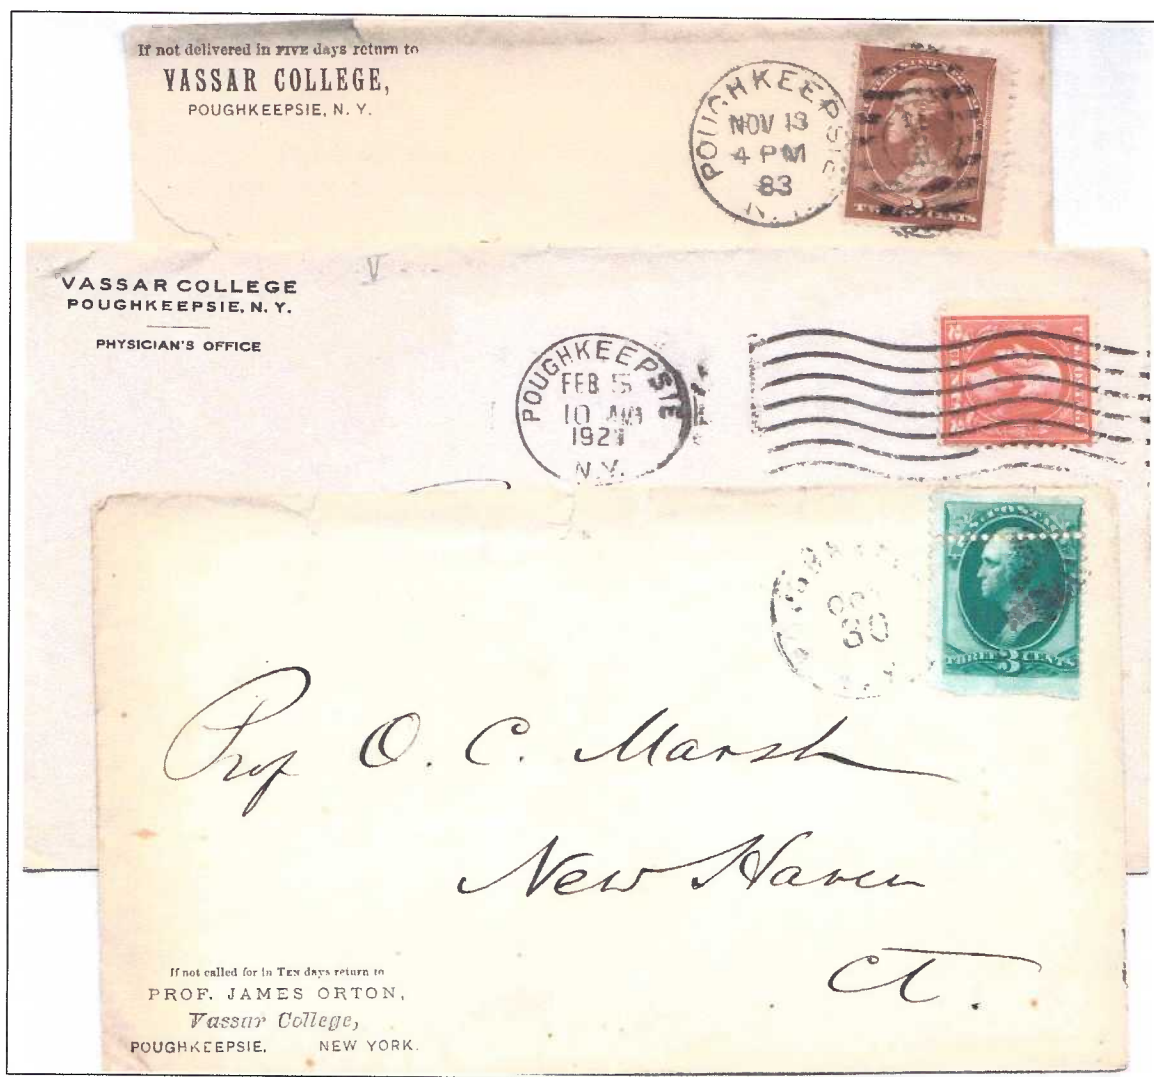 If not delivered in FIVE days return to
VASSAR COLLEGE,
POUGHKEEPSIE, N. Y.
POUGHKEEPSIE
NOV 13
4 PM
83
N.Y.
TWO 2 CENTS
VASSAR COLLEGE
POUGHKEEPSIE, N. Y.
PHYSICIAN'S OFFICE
POUGHKEEPSIE
FEB 5
10 AM
1921
N.Y.
U.S. POSTAGE
THREE 3 CENTS
OCT
30
Prof O. C. Marsh
New Haven
Ct.
If not called for in TEN days return to
PROF. JAMES ORTON,
Vassar College,
POUGHKEEPSIE, NEW YORK.